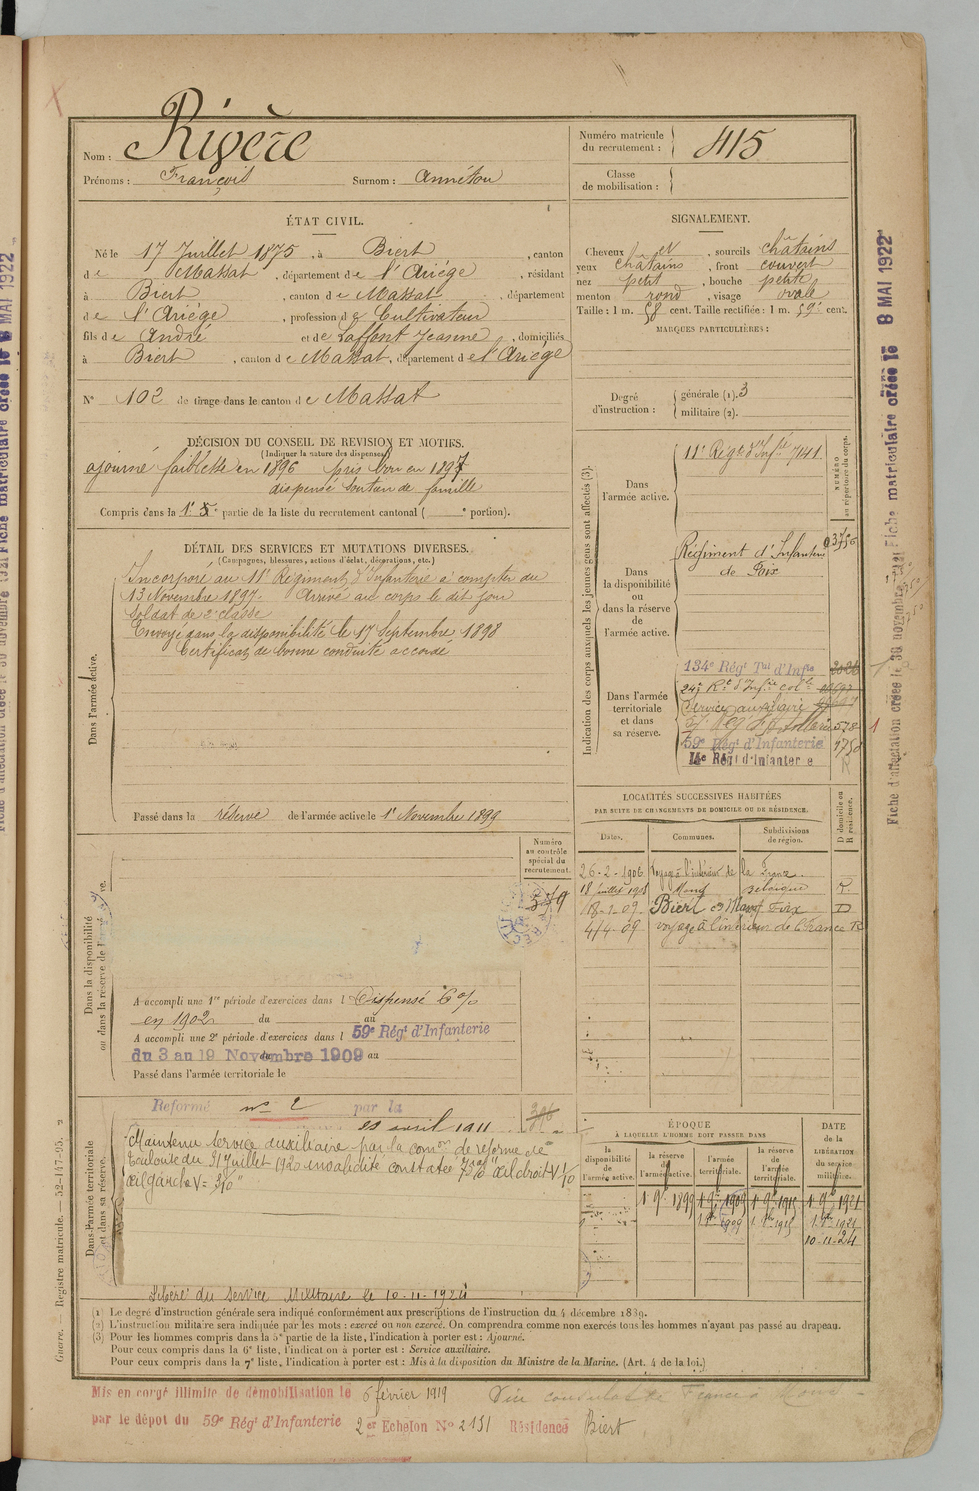 Rivère
Nom :
Prénoms : François Surnom : Annétou
Numéro matricule
du recrutement : 415
Classe
de mobilisation :
ÉTAT CIVIL.
Né le 17 Juillet 1875, à Biert, canton
de Massat, département de l'Ariège, résidant
à Biert, canton de Massat, département
de l'Ariège, profession de Cultivateur
fils de André et de Laffont Jeanne, domiciliés
à Biert, canton de Massat, département de l'Ariège
N° 102 de tirage dans le canton de Massat
SIGNALEMENT.
Cheveux et, sourcils châtains
yeux châtains, front couvert
nez petit, bouche petite
menton rond, visage ovale
Taille : 1 m. 58 cent. Taille rectifiée : 1 m. 59 cent.
MARQUES PARTICULIÈRES :
Degré
d'instruction :
générale (1). 3
militaire (2).
DÉCISION DU CONSEIL DE REVISION ET MOTIFS.
(Indiquer la nature des dispenses)
ajourné faiblesse en 1896 pris bon en 1897
dispensé soutien de famille
Compris dans la 1e partie de la liste du recrutement cantonal ( portion).
DÉTAIL DES SERVICES ET MUTATIONS DIVERSES.
(Campagnes, blessures, actions d'éclat, décorations, etc.)
Dans l'armée active.
Incorporé au 11e Régiment d'Infanterie à compter du
13 Novembre 1897. Arrivé au corps le dit jour
Soldat de 2e classe
Envoyé dans la disponibilité le 17 Septembre 1898
Certificat de bonne conduite accordé
Passé dans la réserve de l'armée active le 1er Novembre 1899
Indication des corps auxquels les jeunes gens sont affectés (3).
NUMÉRO
au répertoire du corps.
Dans
l'armée active.
11e Régt d'Infie 7141
Dans
la disponibilité
ou
dans la réserve
de
l'armée active.
Régiment d'Infanterie
de Foix
Dans l'armée
territoriale
et dans
sa réserve.
134e Régt Tal d'Infie
Service auxiliaire
59e Régt d'Infanterie
14e Régt d'Infanterie
R
LOCALITÉS SUCCESSIVES HABITÉES
PAR SUITE DE CHANGEMENTS DE DOMICILE OU DE RÉSIDENCE.
Dates. Communes. Subdivisions
de région.
D domicile ou
R résidence.
26-2-1906 Voyage à l'intérieur de la France
18 Juillet 1908 Mons Belgique R
18-1-09 Biert Foix D
4/4-09 voyage à l'intérieur de la France R
Numéro
au contrôle
spécial du
recrutement.
Dans la disponibilité
ou dans la réserve de l'armée active.
A accompli une 1re période d'exercices dans l Dispensé 6%
en 1902 du au
A accompli une 2e période d'exercices dans l 59e Régt d'Infanterie
du 3 au 19 Novembre 1909 au
Passé dans l'armée territoriale le
Dans l'armée territoriale
et dans sa réserve.
Reformé n° 2 par la
avril 1911
Maintenu service auxiliaire par la comon de réforme de
Toulouse du 21 Juillet 1920 invalidité constatée œil droit V 1/10
œil gauche V=
Libéré du Service Militaire le 10-11-1924
ÉPOQUE
À LAQUELLE L'HOMME DOIT PASSER DANS
la
disponibilité
de
l'armée active.
la réserve
de
l'armée active.
l'armée
territoriale.
la réserve
de
l'armée
territoriale.
DATE
de la
LIBÉRATION
du service
militaire.
1 9bre 1899 1 9bre 1909 1 9bre 1915 1 9bre 1921
10-11-24
(1) Le degré d'instruction générale sera indiqué conformément aux prescriptions de l'instruction du 4 décembre 1889.
(2) L'instruction militaire sera indiquée par les mots : exercé ou non exercé. On comprendra comme non exercés tous les hommes n'ayant pas passé au drapeau.
(3) Pour les hommes compris dans la 5e partie de la liste, l'indication à porter est : Ajourné.
Pour ceux compris dans la 6e liste, l'indication à porter est : Service auxiliaire.
Pour ceux compris dans la 7e liste, l'indication à porter est : Mis à la disposition du Ministre de la Marine. (Art. 4 de la loi.)
Mis en congé illimité de démobilisation le 6 février 1919
par le dépôt du 59e Régt d'Infanterie 2er Echelon N° 2131 Résidence Biert
Vu consulat de France à Mons
Guerre. — Registre matricule. — 52-147-95.
Fiche d'affectation créée le 30 novembre 1921 Fiche matriculaire créée le 8 MAI 1922